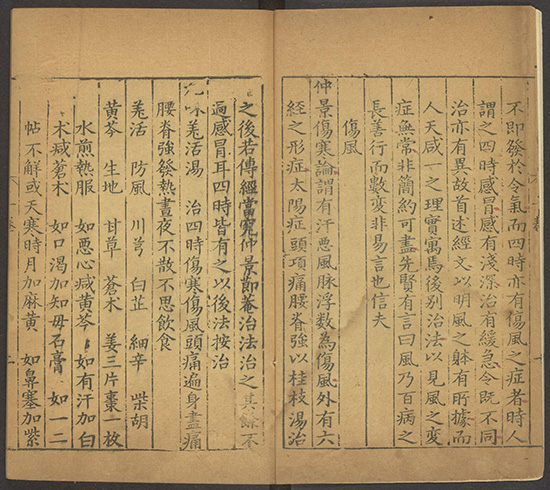 不即發於令氣而四時亦有傷風之症者時人
謂之四時感冒感有淺深治有緩急令既不同
治亦有異故首述經文以明風之躰有所據而
人天咸一之理實寓焉後别治法以見風之變
症無常非簡約可盡先賢有言曰風乃百病之
長善行而數變非易言也信夫
傷風
仲景傷寒論謂有汗悪風脉浮数為傷風外有六
經之形症太陽症頭項痛腰脊強以桂枝湯治
之後若傳經當究仲景節菴治法治之其餘不
過感冒耳四時皆有之以後法按治
九味羗活湯 治四時傷寒傷風頭痛遍身盡痛
腰脊強發熱晝夜不散不思飲食
羗活 防風 川芎 白芷 細辛 柴胡
黄芩 生地 甘草 蒼朮 姜三片棗一枚
水煎熱服 如悪心減黄芩 如有汗加白
朮减蒼朮 如口渴加知毋石膏 如一二
帖不解或天寒時月加麻黄 如鼻塞加紫